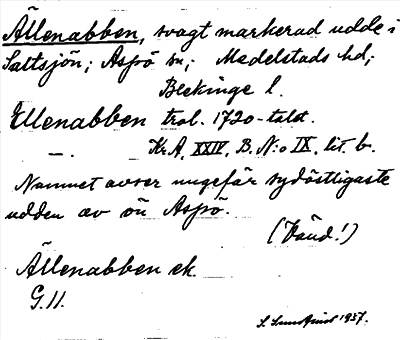 Ällenabben, svagt markerad udde i
Saltsjön; Aspö sn; Medelstads hd;
Blekinge l.
Ellenabben trol. 1720-talet.
—. Kr.A. XXIV, B. N:o IX, lit. b.
Namnet avser ungefär sydöstligaste
udden av ön Aspö.
(Vänd!)
Ällenabben ek.
G. 11.
S. 1937.